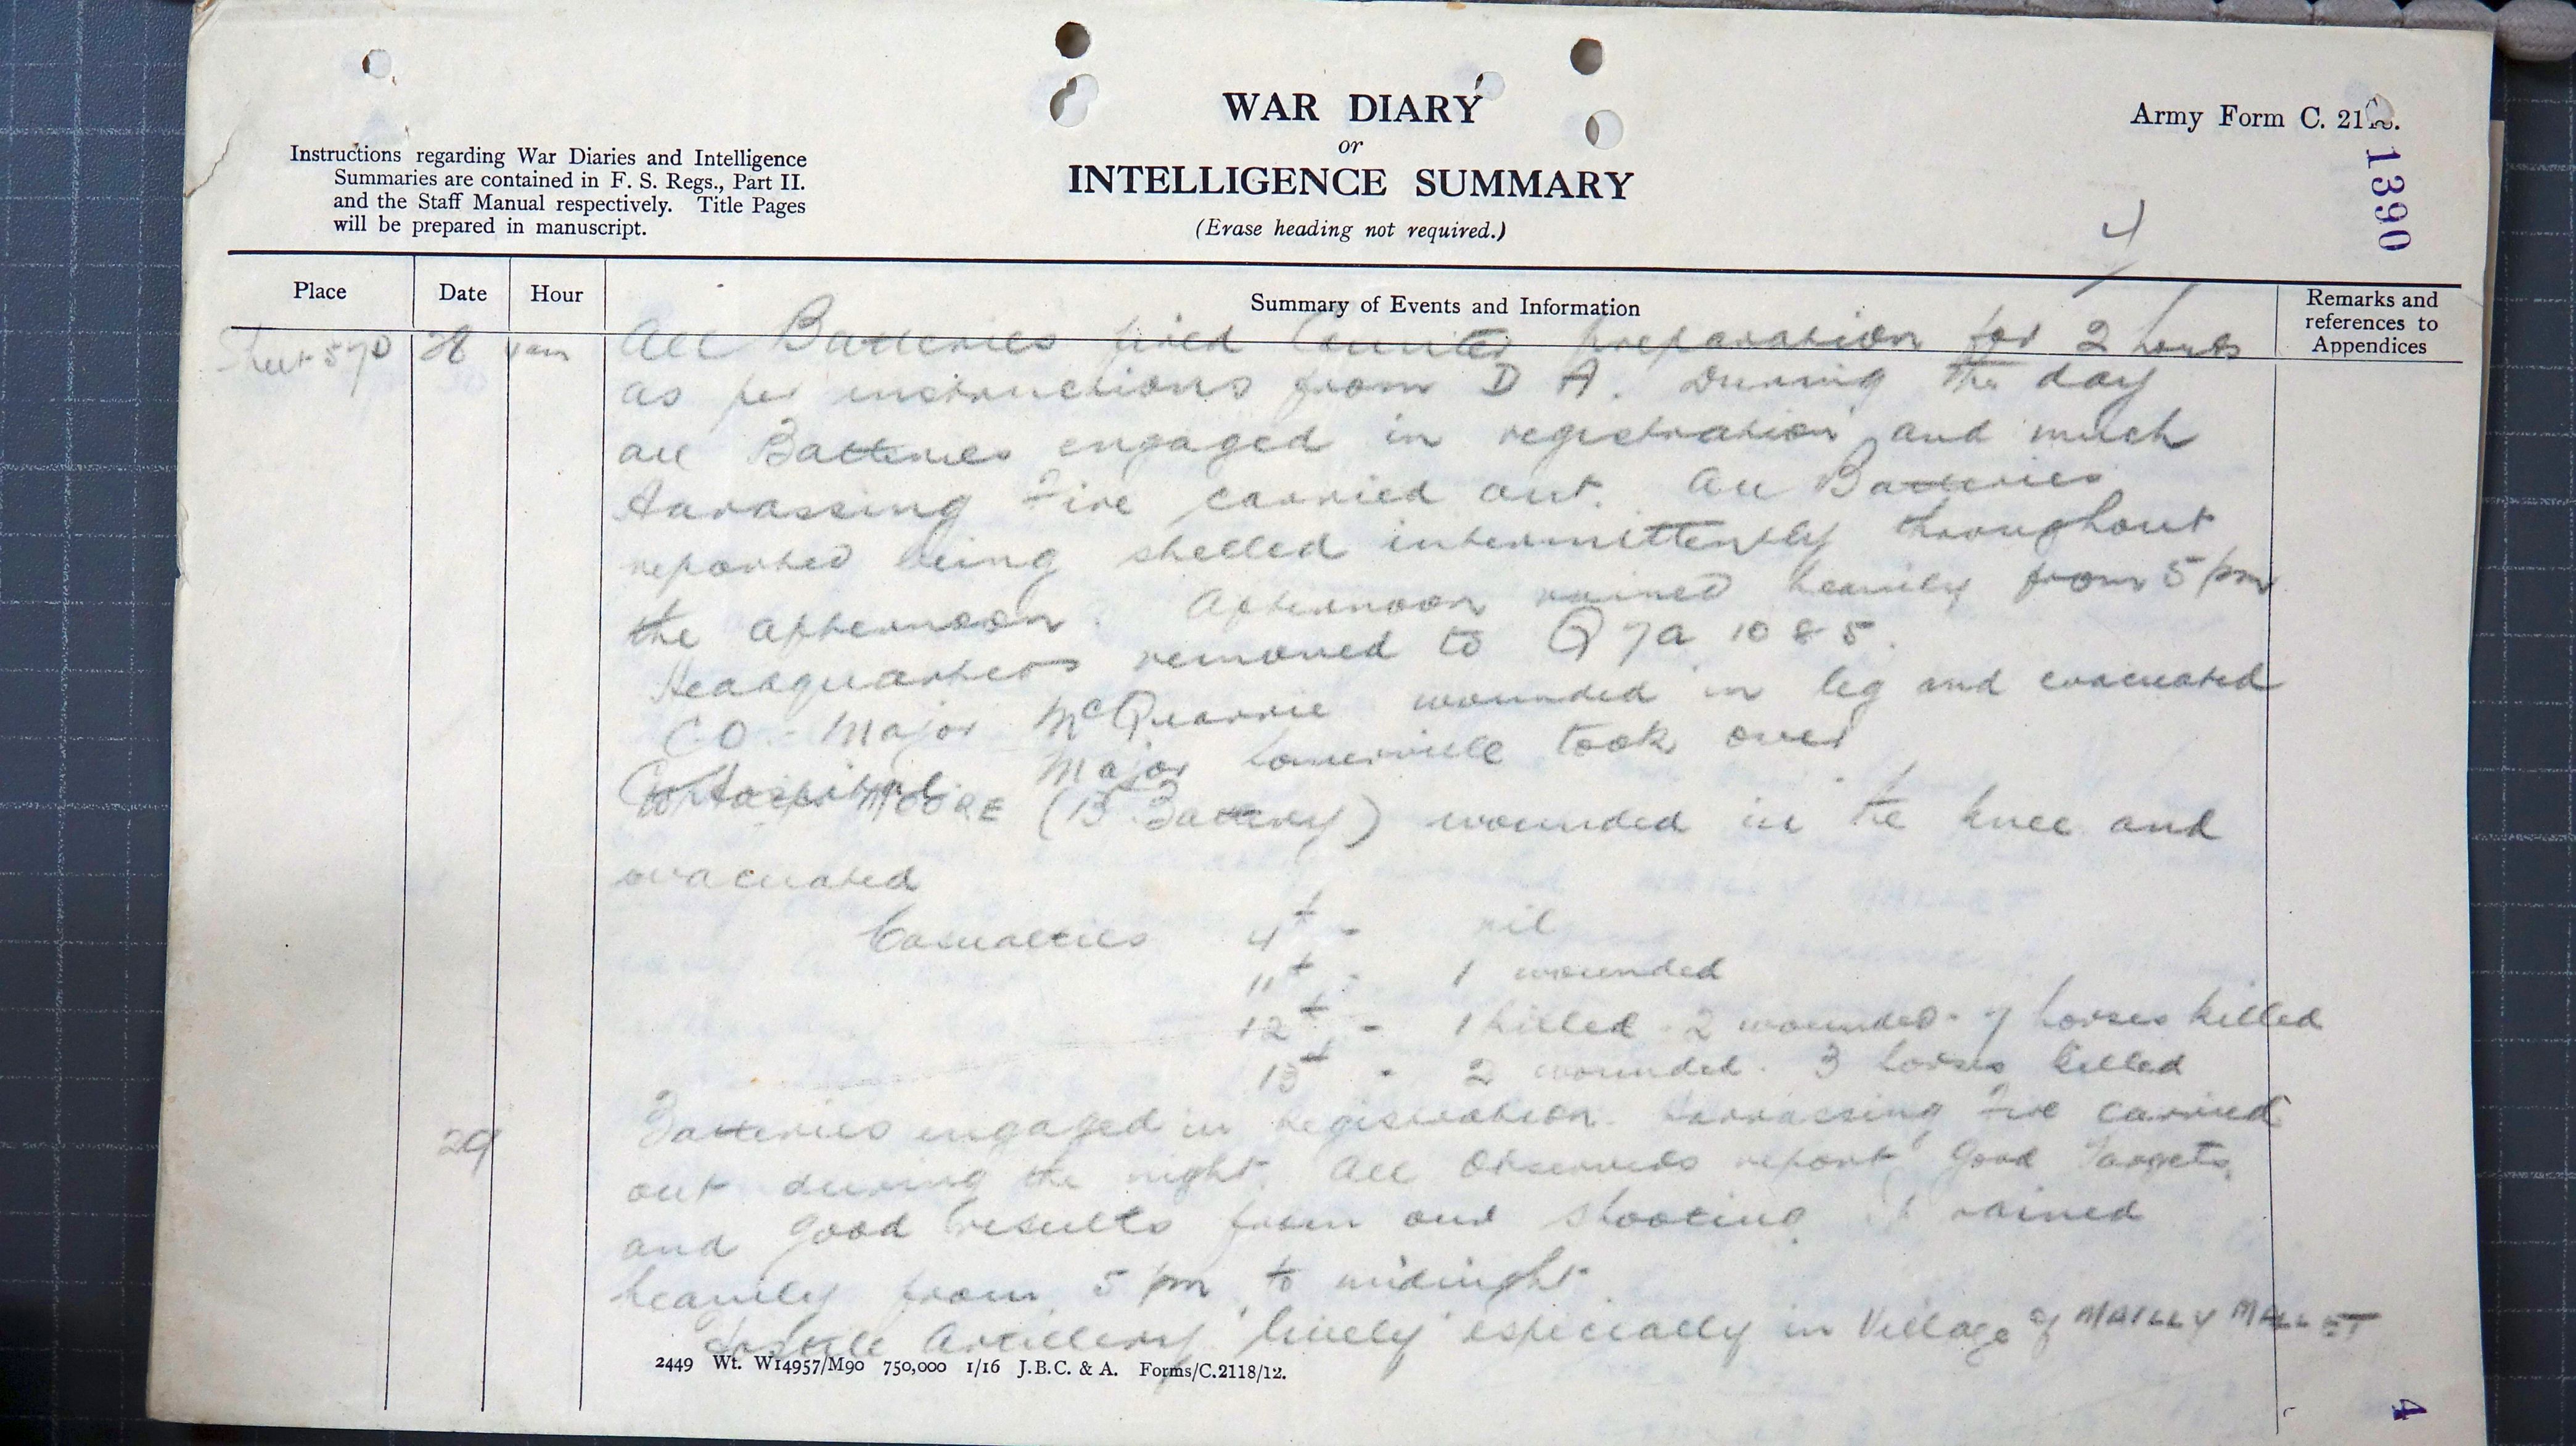 WAR DIARY
or
INTELLIGENCE SUMMARY
(Erase heading not required.)
Army Form C. 2118.
1390
4
Instructions regarding War Diaries and Intelligence
Summaries are contained in F. S. Regs., Part II.
and the Staff Manual respectively. Title Pages
will be prepared in manuscript.
Place Date Hour Summary of Events and Information Remarks and references to Appendices
Sheet 57D 28 All Batteries fired Counter preparation for 2 hours
as per instructions from D A. During the day
all Batteries engaged in registration and much
Harassing Fire carried out. All Batteries
reported being shelled intermittently throughout
the afternoon. Afternoon rained heavily from 5 pm
Headquarters removed to Q 7a 10 85.
CO - Major McQuarrie wounded in leg and evacuated
Major Somerville took over
MOORE (13 Battery) wounded in the knee and
evacuated
Casualties 4th - nil
11th - 1 wounded
12th - 1 killed - 2 wounded - 7 horses killed
13th - 2 wounded. 3 horses killed
29 Batteries engaged in Registration. Harrassing Fire carried
out during the night. All Observers report good Targets
and good results from our shooting. It rained
heavily from 5 pm to midnight
Hostile Artillery lively especially in Village of MAILLY MALLET
2449 Wt. W14957/M90 750,000 1/16 J.B.C. & A. Forms/C.2118/12.
4